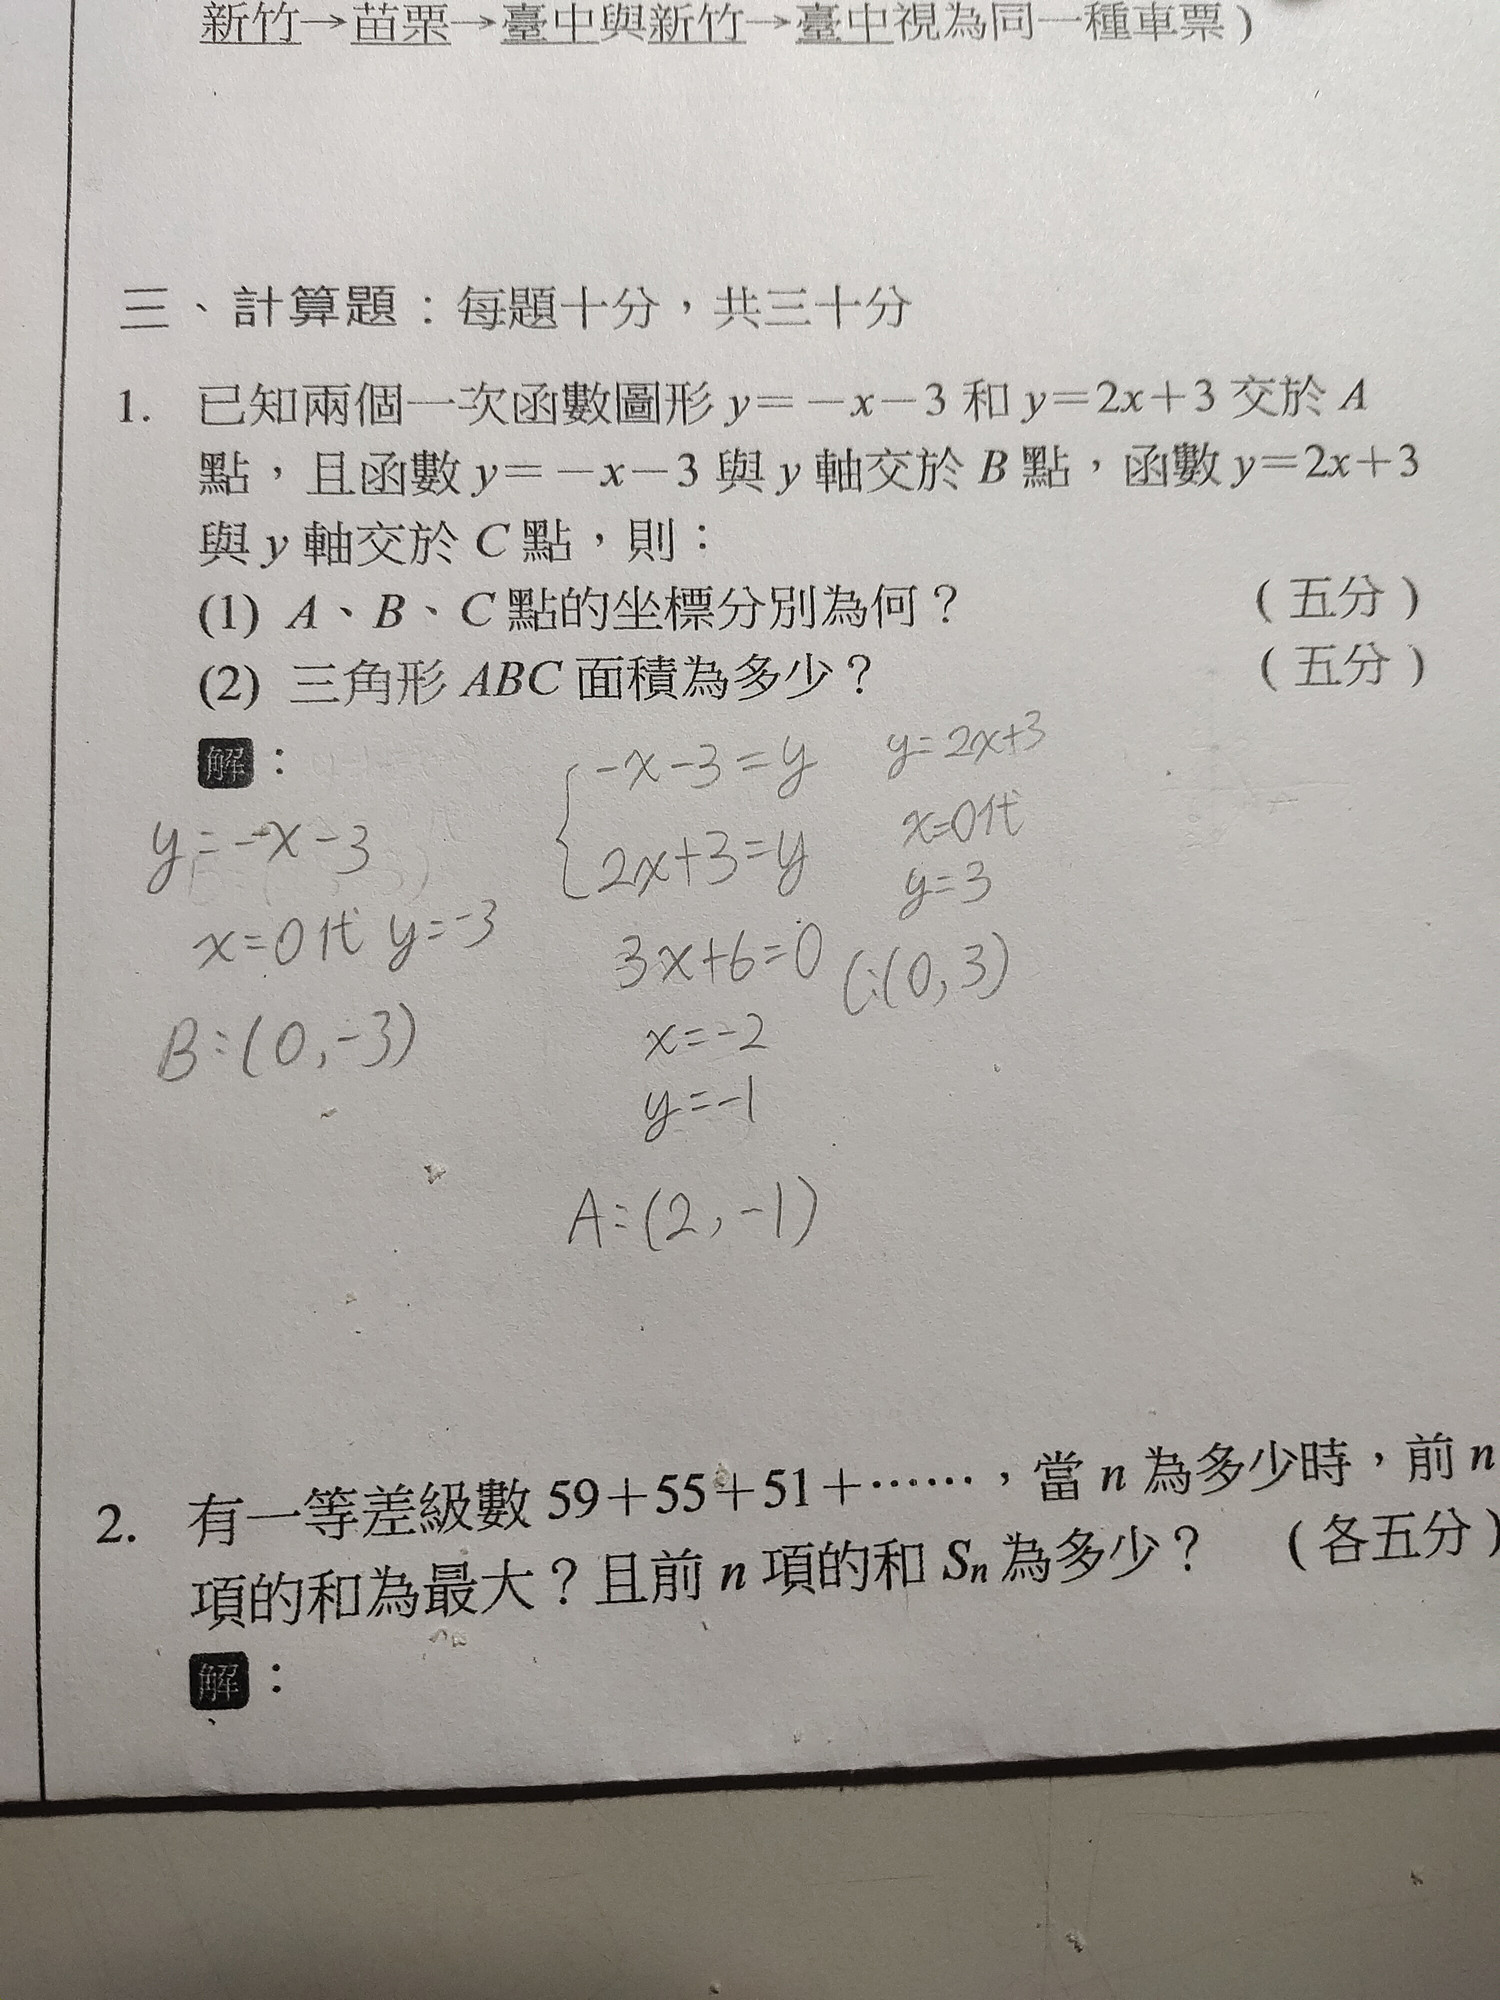 新竹→苗栗→臺中與新竹→臺中視為同一種車票)
三、計算題：每題十分，共三十分
1. 已知兩個一次函數圖形 y＝－x－3 和 y＝2x＋3 交於 A
點，且函數 y＝－x－3 與 y 軸交於 B 點，函數 y＝2x＋3
與 y 軸交於 C 點，則：
(1) A、B、C 點的坐標分別為何？ (五分)
(2) 三角形 ABC 面積為多少？ (五分)
解：
y=-x-3
x=0代 y=-3
B:(0,-3)
-x-3=y
2x+3=y
3x+6=0
x=-2
y=-1
A:(2,-1)
y=2x+3
x=0代
y=3
C:(0,3)
2. 有一等差級數 59＋55＋51＋……，當 n 為多少時，前 n
項的和為最大？且前 n 項的和 Sn 為多少？ (各五分)
解：